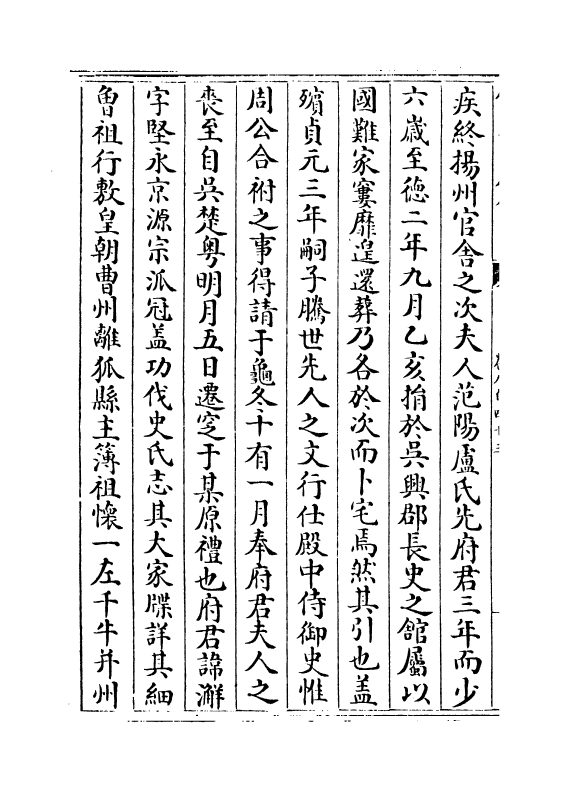 疾終揚州官舎之次夫人范陽盧氏先府君三年而少
六歳至徳二年九月乙亥捐於呉興郡長史之舘屬以
國難家寠靡遑還葬乃各於次而卜宅焉然其引也盖
殯貞元三年嗣子騰世先人之文行仕殿中侍御史惟
周公合祔之事得請于龜冬十有一月奉府君夫人之
喪至自呉楚粤明月五日遷窆于某原禮也府君諱澥
字堅永京源宗派冠盖功伐史氏志其大家牒詳其細
曾祖行敷皇朝曹州離狐縣主簿祖懷一左千牛并州